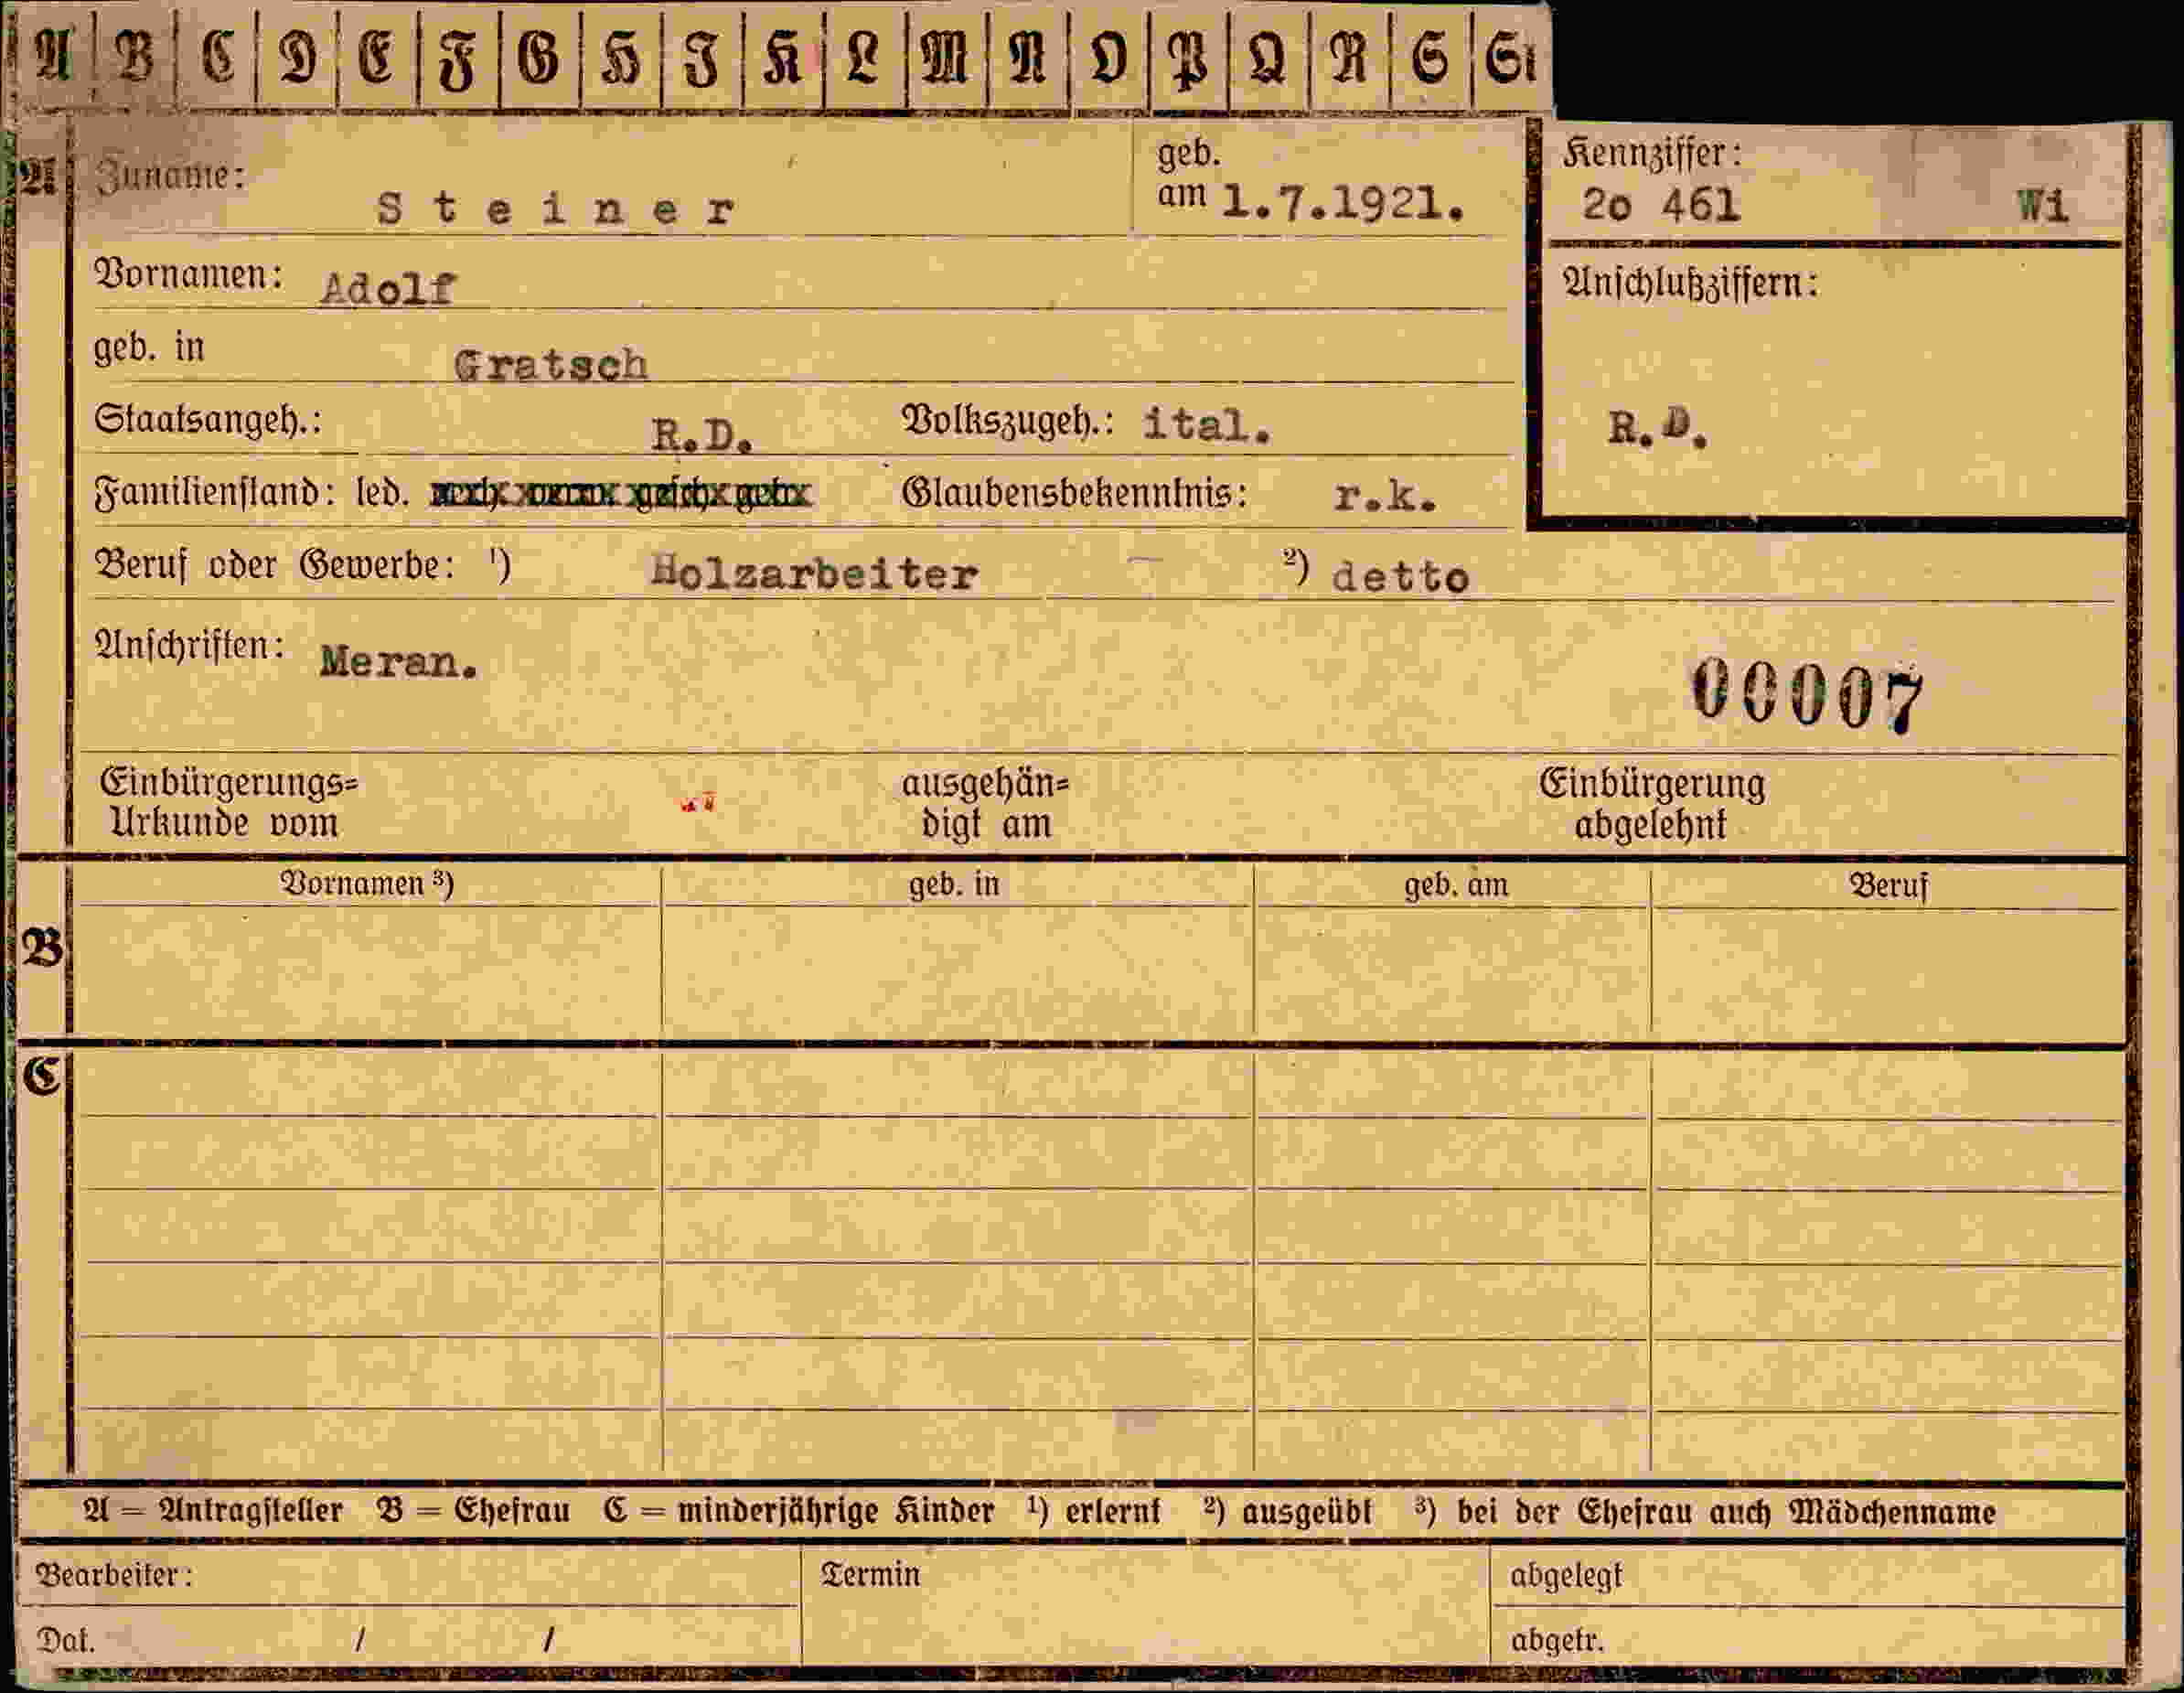 A B C D E F G H I K L M N O P Q R S St
A Zuname: Steiner geb. am 1.7.1921. Kennziffer: 2o 461 Wi
Vornamen: Adolf
Anschlußziffern:
geb. in Gratsch
Staatsangeh.: R.D. Volkszugeh.: ital. R.D.
Familienstand: led. Glaubensbekenntnis: r.k.
Beruf oder Gewerbe: ¹) Holzarbeiter ²) detto
Anschriften: Meran.
00007
Einbürgerungs= ausgehän= Einbürgerung
Urkunde vom digt am abgelehnt
Vornamen ³) geb. in geb. am Beruf
B
C
A = Antragsteller B = Ehefrau C = minderjährige Kinder ¹) erlernt ²) ausgeübt ³) bei der Ehefrau auch Mädchenname
Bearbeiter: Termin abgelegt
Dat. / / abgetr.